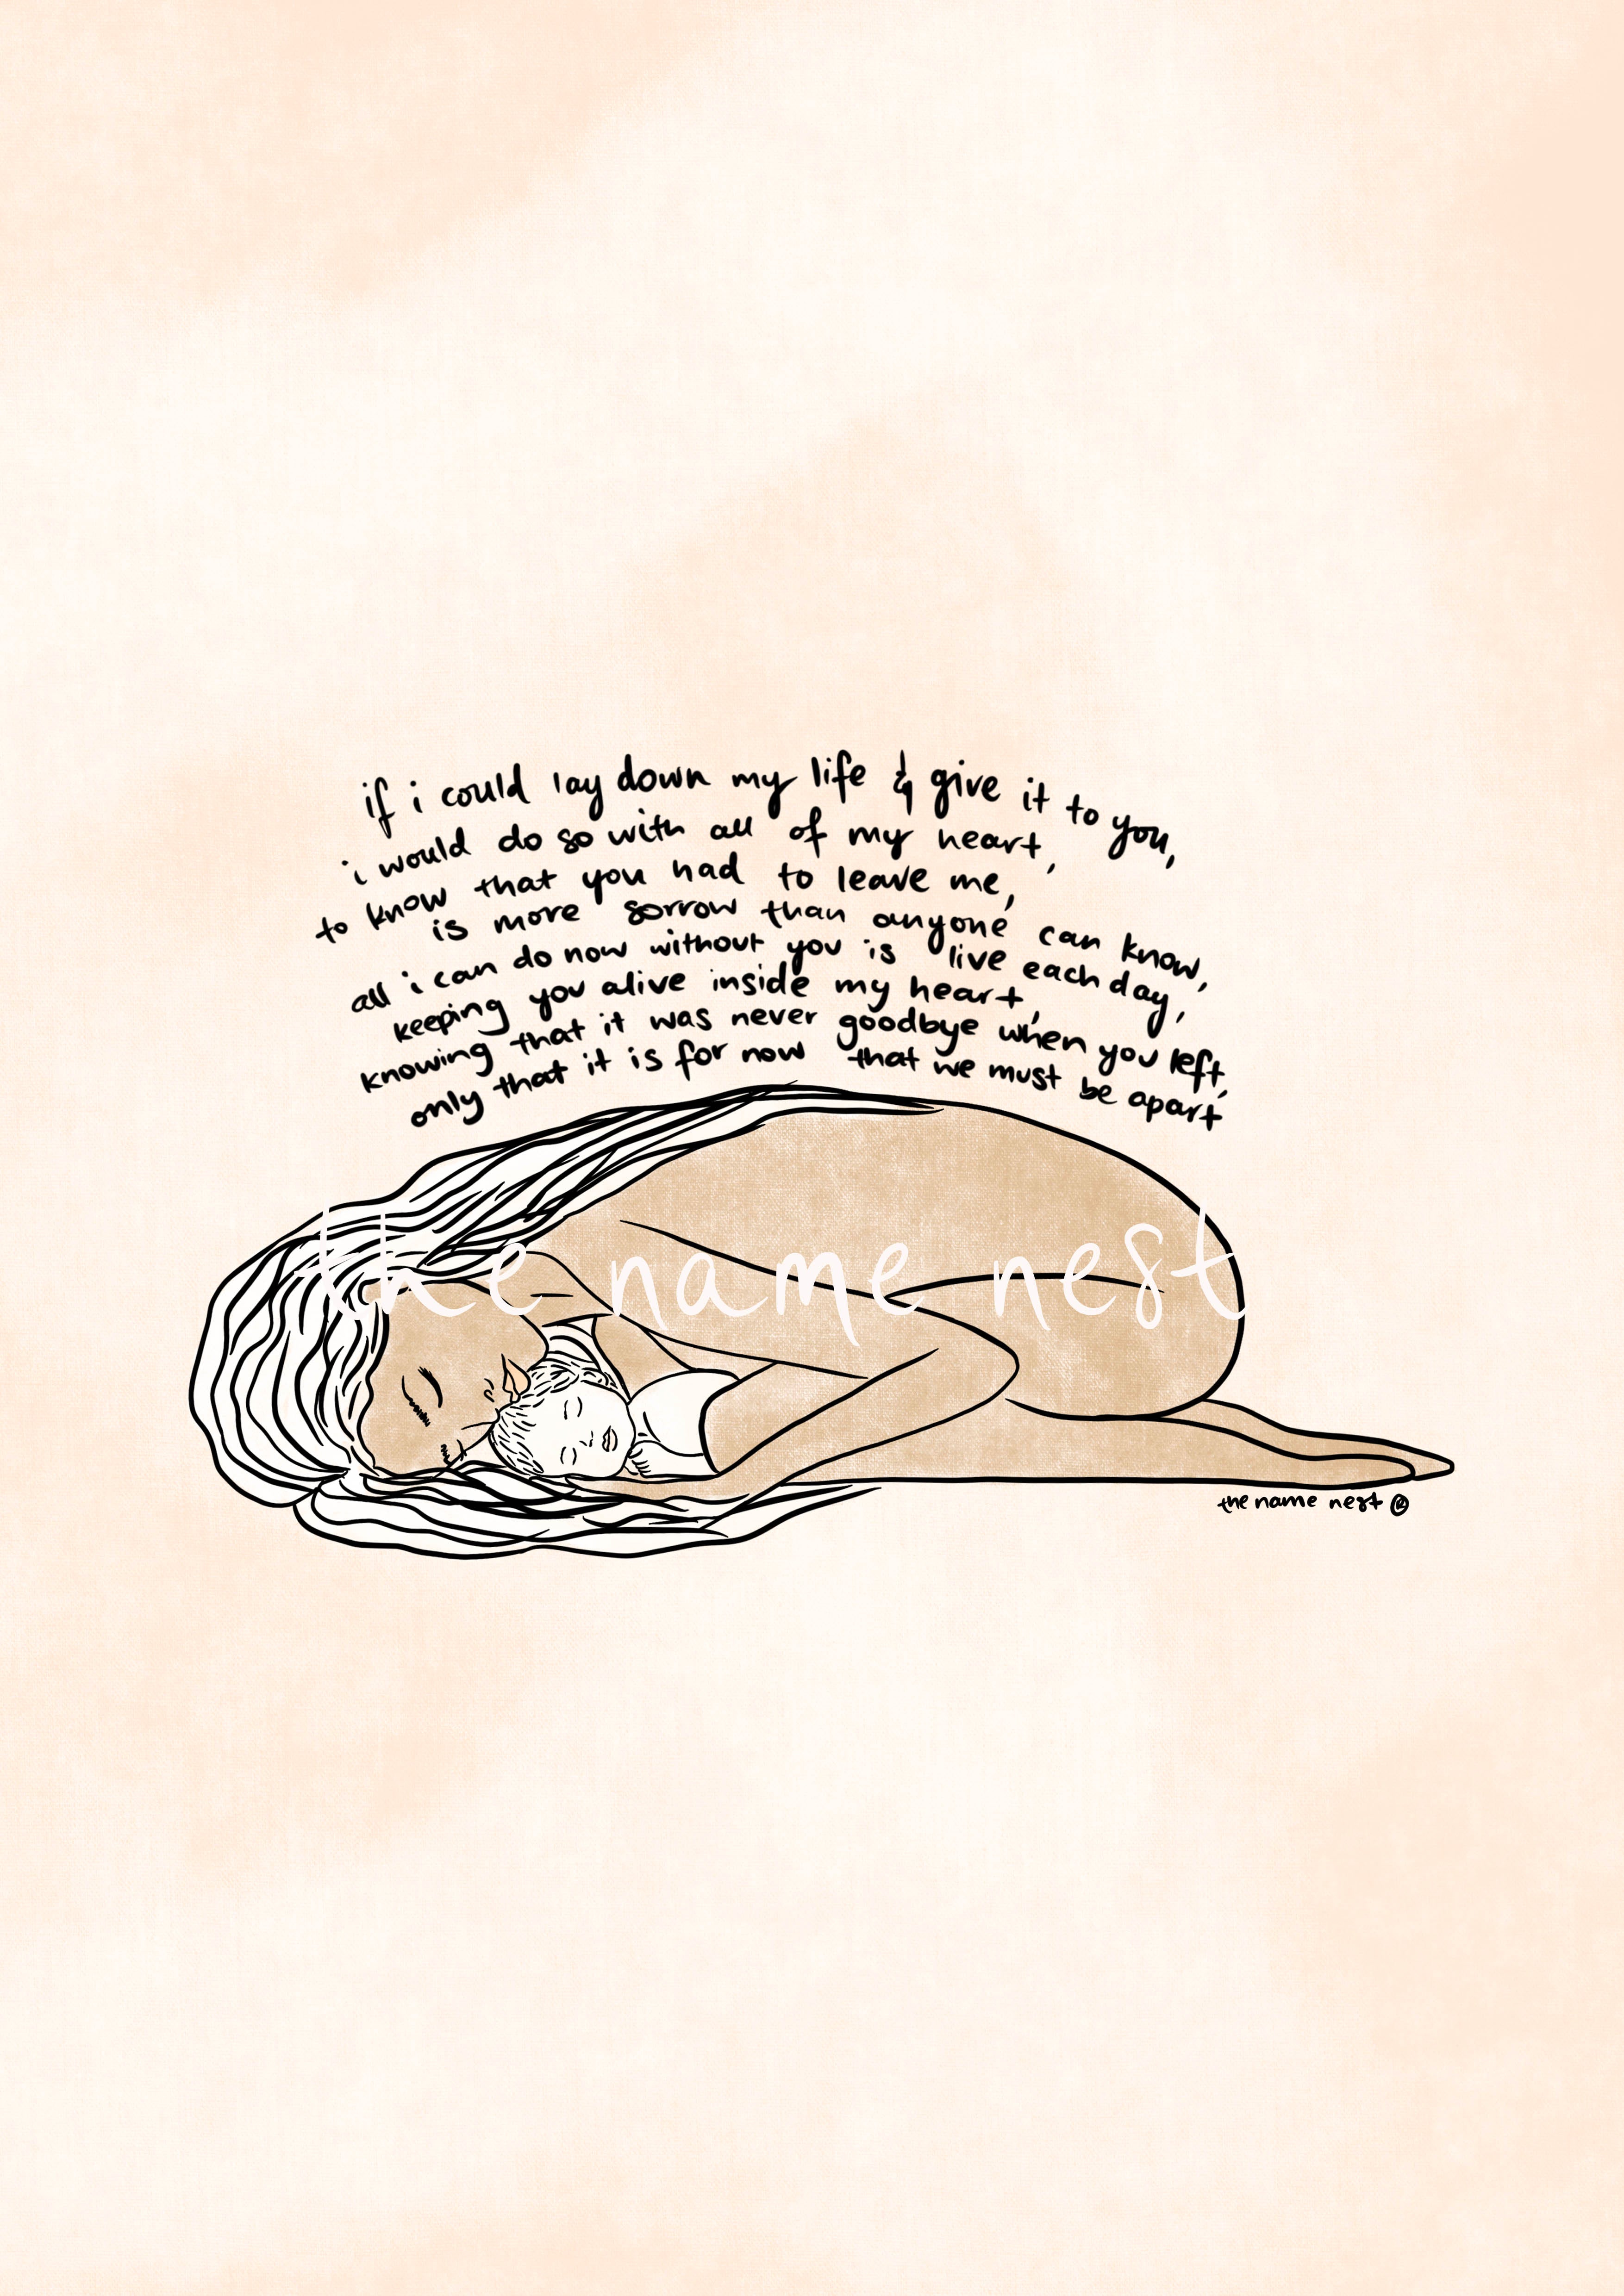 if i could lay down my life & give it to you,
i would do so with all of my heart,
to know that you had to leave me,
is more sorrow than anyone can know,
all i can do now without you is live each day,
keeping you alive inside my heart,
knowing that it was never goodbye when you left,
only that it is for now that we must be apart
the name nest
the name nest ®